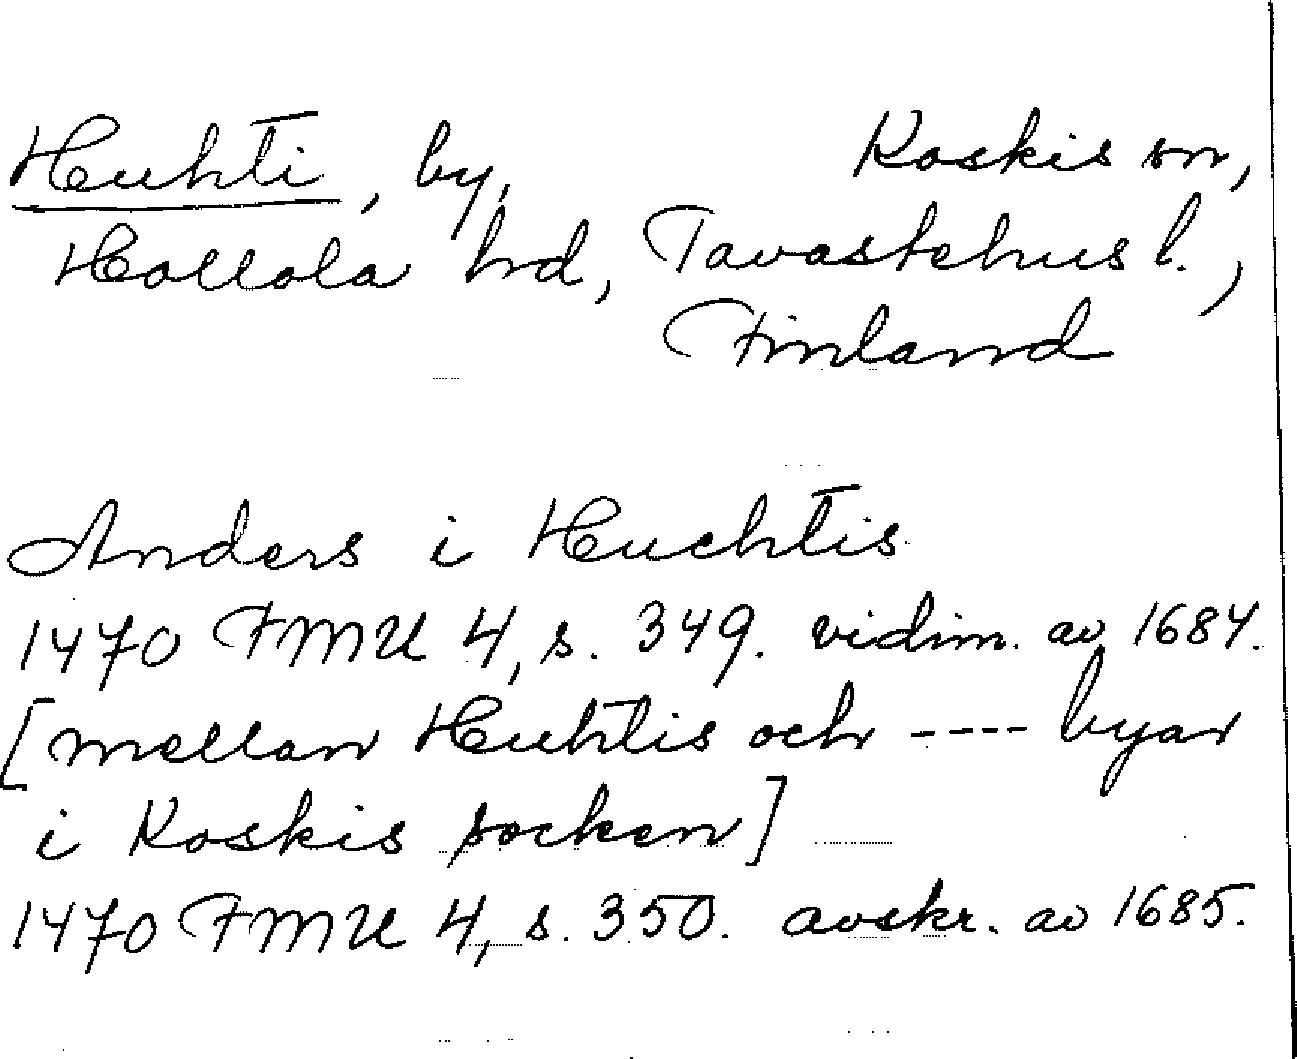 Huhti, by, Koskis sn,
Hollola hrd, Tavastehus l.,
Finland
Anders i Huchtis
1470 FMU 4, s. 349. vidim. av 1684.
[mellan Huhtis och ---- byar
i Koskis socken]
1470 FMU 4, s. 350. avskr. av 1685.